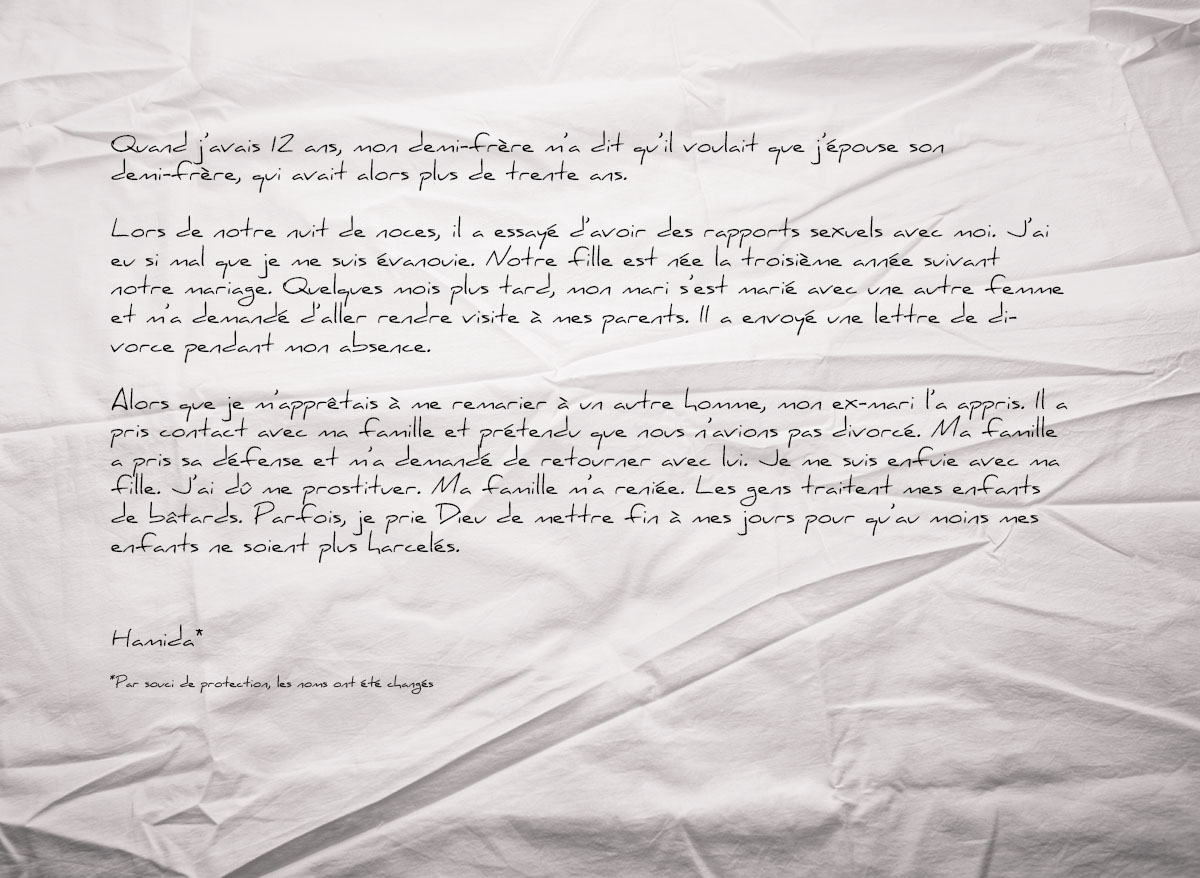 Quand j'avais 12 ans, mon demi-frère m'a dit qu'il voulait que j'épouse son
demi-frère, qui avait alors plus de trente ans.
Lors de notre nuit de noces, il a essayé d'avoir des rapports sexuels avec moi. J'ai
eu si mal que je me suis évanouie. Notre fille est née la troisième année suivant
notre mariage. Quelques mois plus tard, mon mari s'est marié avec une autre femme
et m'a demandé d'aller rendre visite à mes parents. Il a envoyé une lettre de di-
vorce pendant mon absence.
Alors que je m'apprêtais à me remarier à un autre homme, mon ex-mari l'a appris. Il a
pris contact avec ma famille et prétendu que nous n'avions pas divorcé. Ma famille
a pris sa défense et m'a demandé de retourner avec lui. Je me suis enfuie avec ma
fille. J'ai dû me prostituer. Ma famille m'a reniée. Les gens traitent mes enfants
de bâtards. Parfois, je prie Dieu de mettre fin à mes jours pour qu'au moins mes
enfants ne soient plus harcelés.
Hamida*
*Par souci de protection, les noms ont été changés